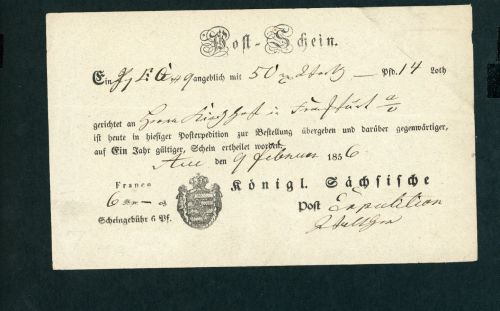 Post-Schein.
Ein angeblich mit 50 Pfd. 14 Loth
gerichtet an Herrn in Frankfurt a/o
ist heute in hiesiger Postexpedition zur Bestellung übergeben und darüber gegenwärtiger,
auf Ein Jahr gültiger, Schein ertheilet worden.
Aue den 9 Februar 1856
Franco
6
Scheingebühr 6 Pf.
Königl. Sächsische
Post Expedition